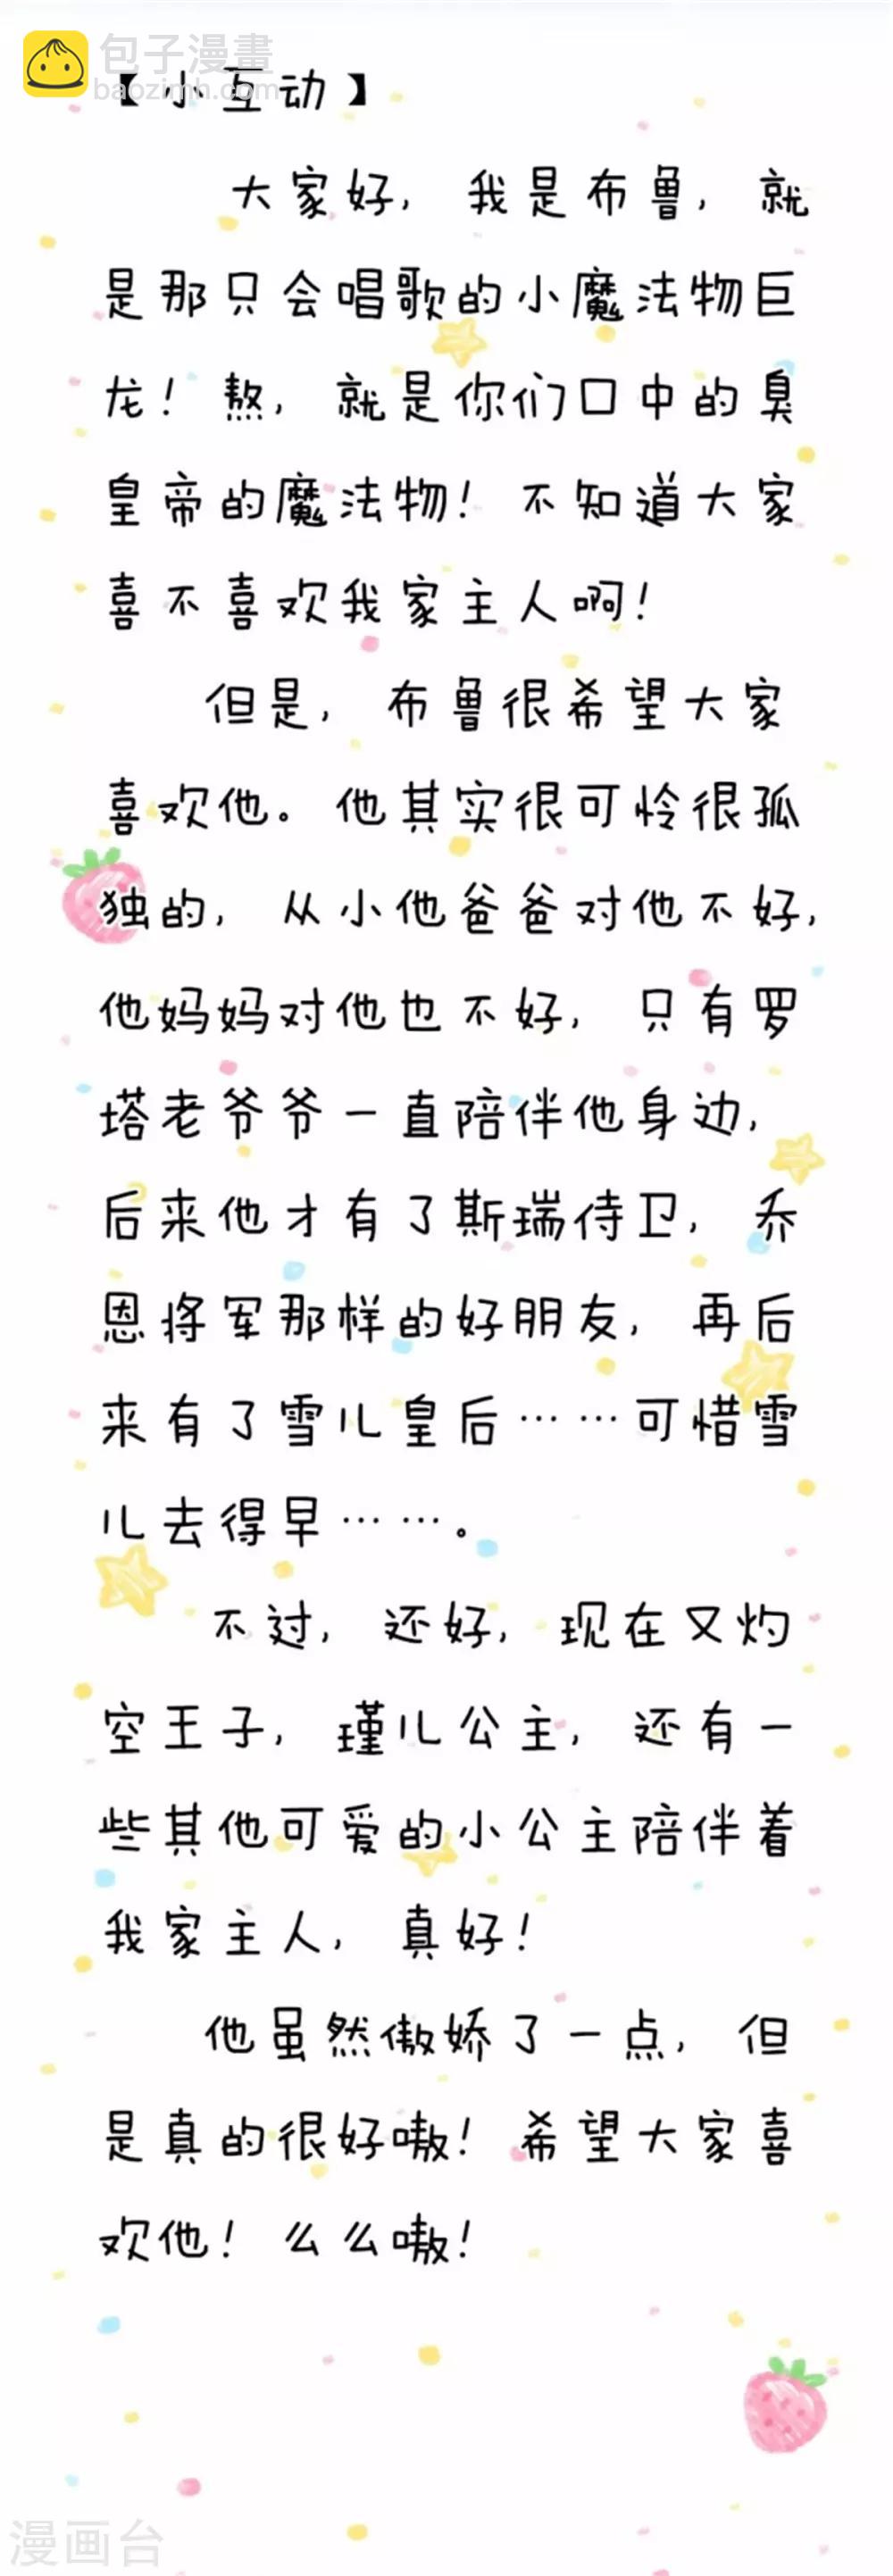 包子漫畫
baozimh.com
【小互动】
大家好，我是布鲁，就
是那只会唱歌的小魔法物巨
龙！熬，就是你们口中的臭
皇帝的魔法物！不知道大家
喜不喜欢我家主人啊！
但是，布鲁很希望大家
喜欢他。他其实很可怜很孤
独的，从小他爸爸对他不好，
他妈妈对他也不好，只有罗
塔老爷爷一直陪伴他身边，
后来他才有了斯瑞侍卫，乔
恩将军那样的好朋友，再后
来有了雪儿皇后……可惜雪
儿去得早……。
不过，还好，现在又灼
空王子，瑾儿公主，还有一
些其他可爱的小公主陪伴着
我家主人，真好！
他虽然傲娇了一点，但
是真的很好嗷！希望大家喜
欢他！么么嗷！
漫画台